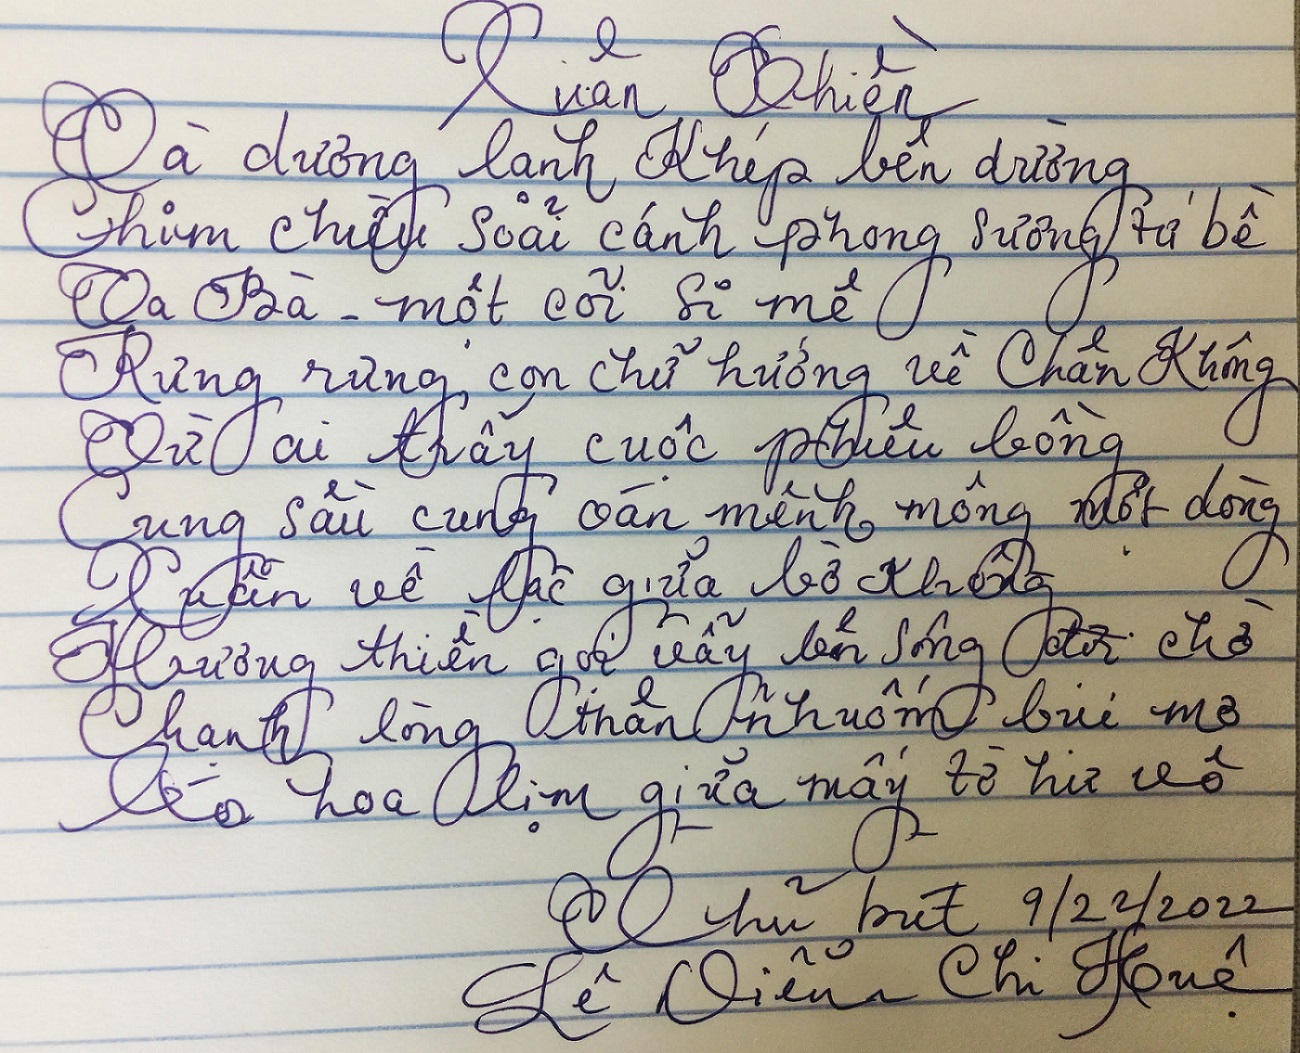 Xuân Thiền
Tà dương lanh Khép bên đường
Chim chiều soải cánh phong sương tứ bề
Ta Bà - một cõi si mê
Rưng rưng con chữ hướng về Chân Không
Từ ai thấy cuộc phiêu bồng
Cung sầu cung oán mênh mông một dòng
Xuân về lạc giữa bờ không
Hương thiền gọi vẫy bên sông đợi chờ
Chạnh lòng thân nhuốm bụi mờ
Áo hoa lịm giữa mấy tờ hư vô
Thủ bút 9/22/2022
Lê Diễm Chi Huệ